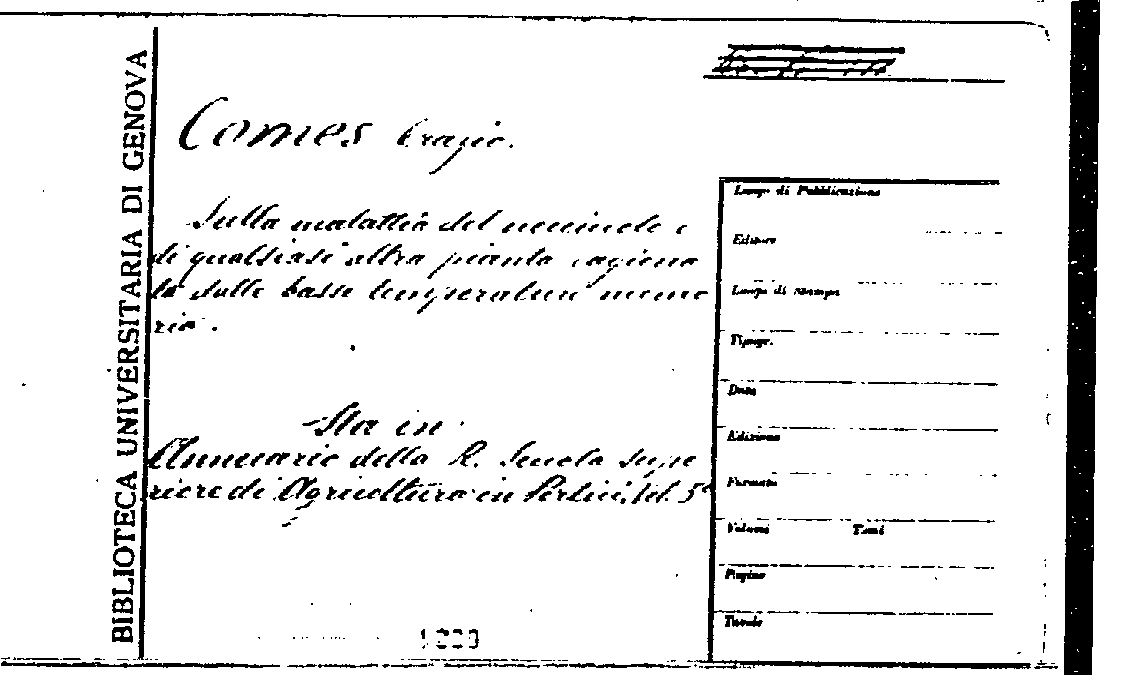 BIBLIOTECA UNIVERSITARIA DI GENOVA
Comes Orazio.
Sulla malattia del nocciuolo e
di qualsiasi altra pianta cagiona
ta dalle basse temperature memo
ria.
Sta in
Annuario della R. Scuola Supe
riore di Agricoltura in Portici, Vol. 5°
Luogo di Pubblicazione
Editore
Luogo di stampa
Tipogr.
Data
Edizione
Formato
Volumi Tomi
Pagine
Tavole